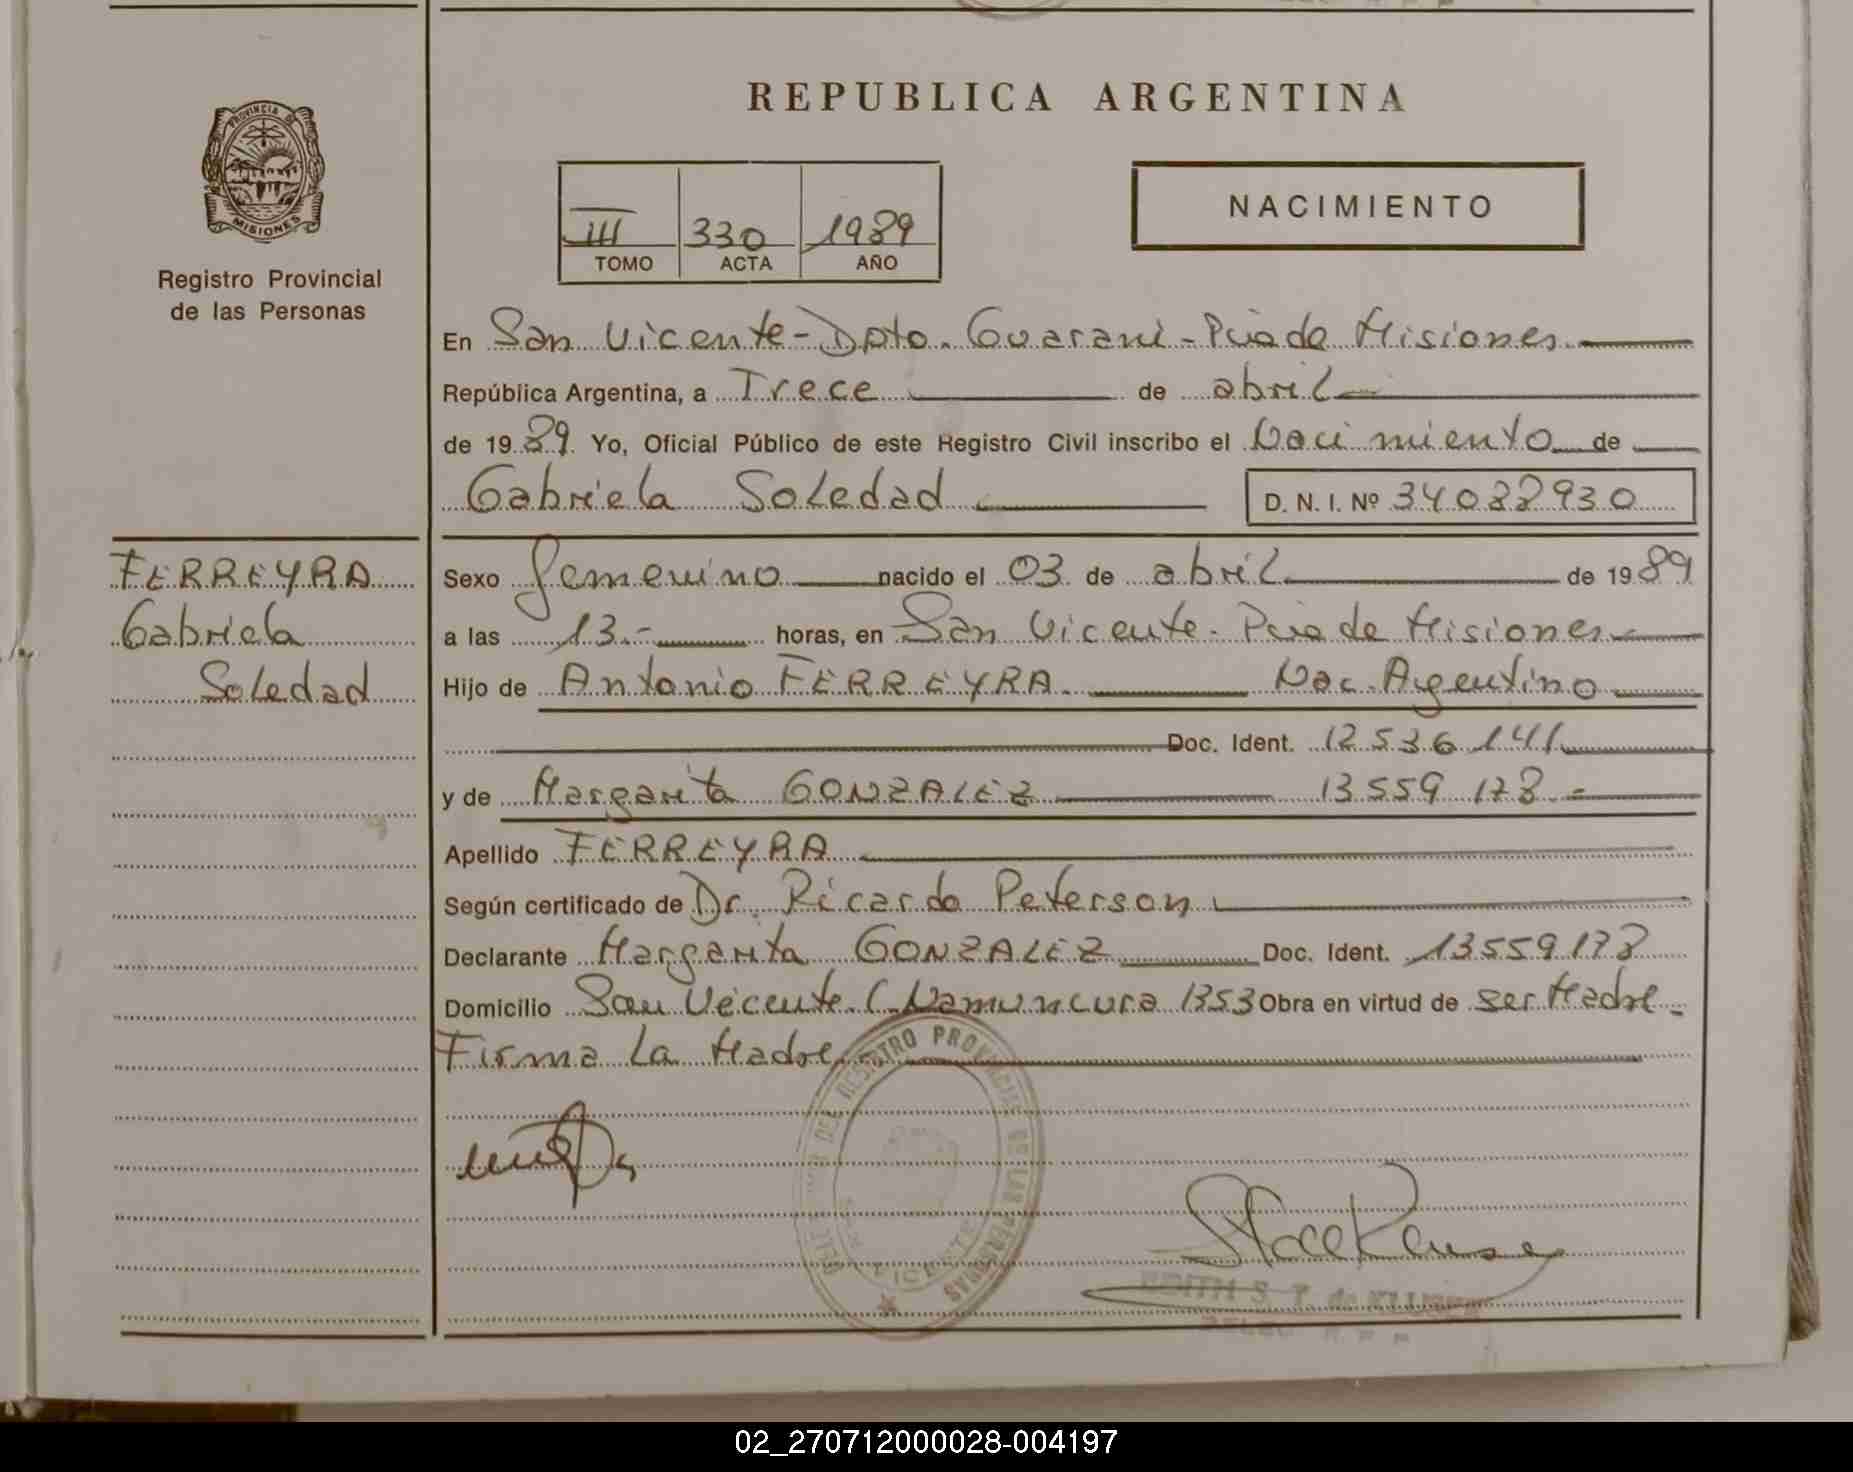 REPUBLICA ARGENTINA
PROVINCIA DE
MISIONES
Registro Provincial
de las Personas
III 330 1989
TOMO ACTA AÑO
NACIMIENTO
En San Vicente - Dpto. Guarani - Pcia de Misiones
República Argentina, a Trece de abril
de 1989. Yo, Oficial Público de este Registro Civil inscribo el Nacimiento de
Gabriela Soledad D. N. I. Nº 34088930
FERREYRA
Gabriela
Soledad
Sexo femenino nacido el 03 de abril de 1989
a las 13.- horas, en San Vicente - Pcia de Misiones
Hijo de Antonio FERREYRA. Nac. Argentino
Doc. Ident. 12536141
y de Margarita GONZALEZ 13559178.-
Apellido FERREYRA
Según certificado de Dr. Ricardo Peterson
Declarante Margarita GONZALEZ Doc. Ident. 13559178
Domicilio San Vicente. C. Namuncura 1353 Obra en virtud de ser Madre.
Firma La Madre.
REGISTRO PROVINCIAL DE LAS PERSONAS
VICENTE
EDITH S. T. de
02_270712000028-004197